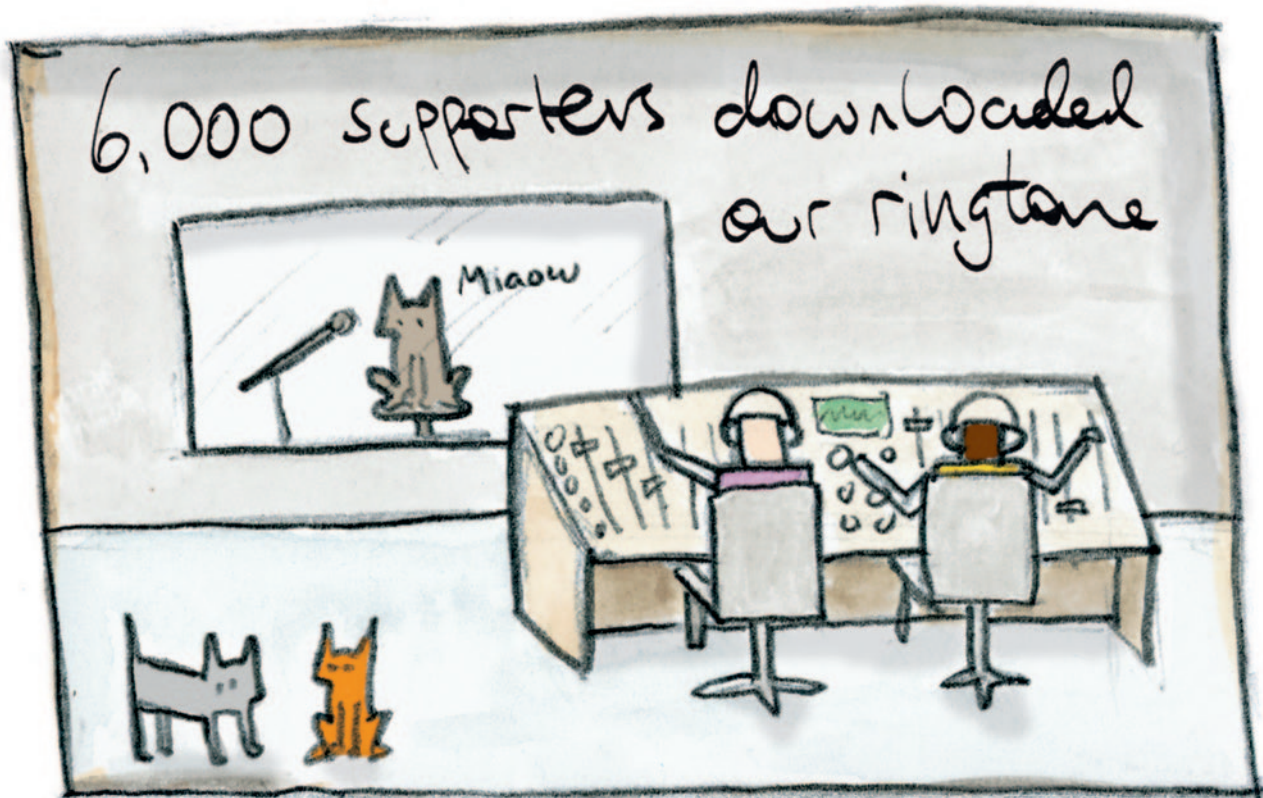 6,000 supporters downloaded
our ringtone
Miaow